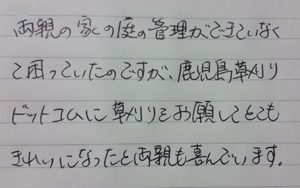 両親の家の庭の管理ができていなく
て困っていたのですが、鹿児島草刈り
ドットコムに草刈りをお願してとても
きれいになったと両親も喜んでいます。